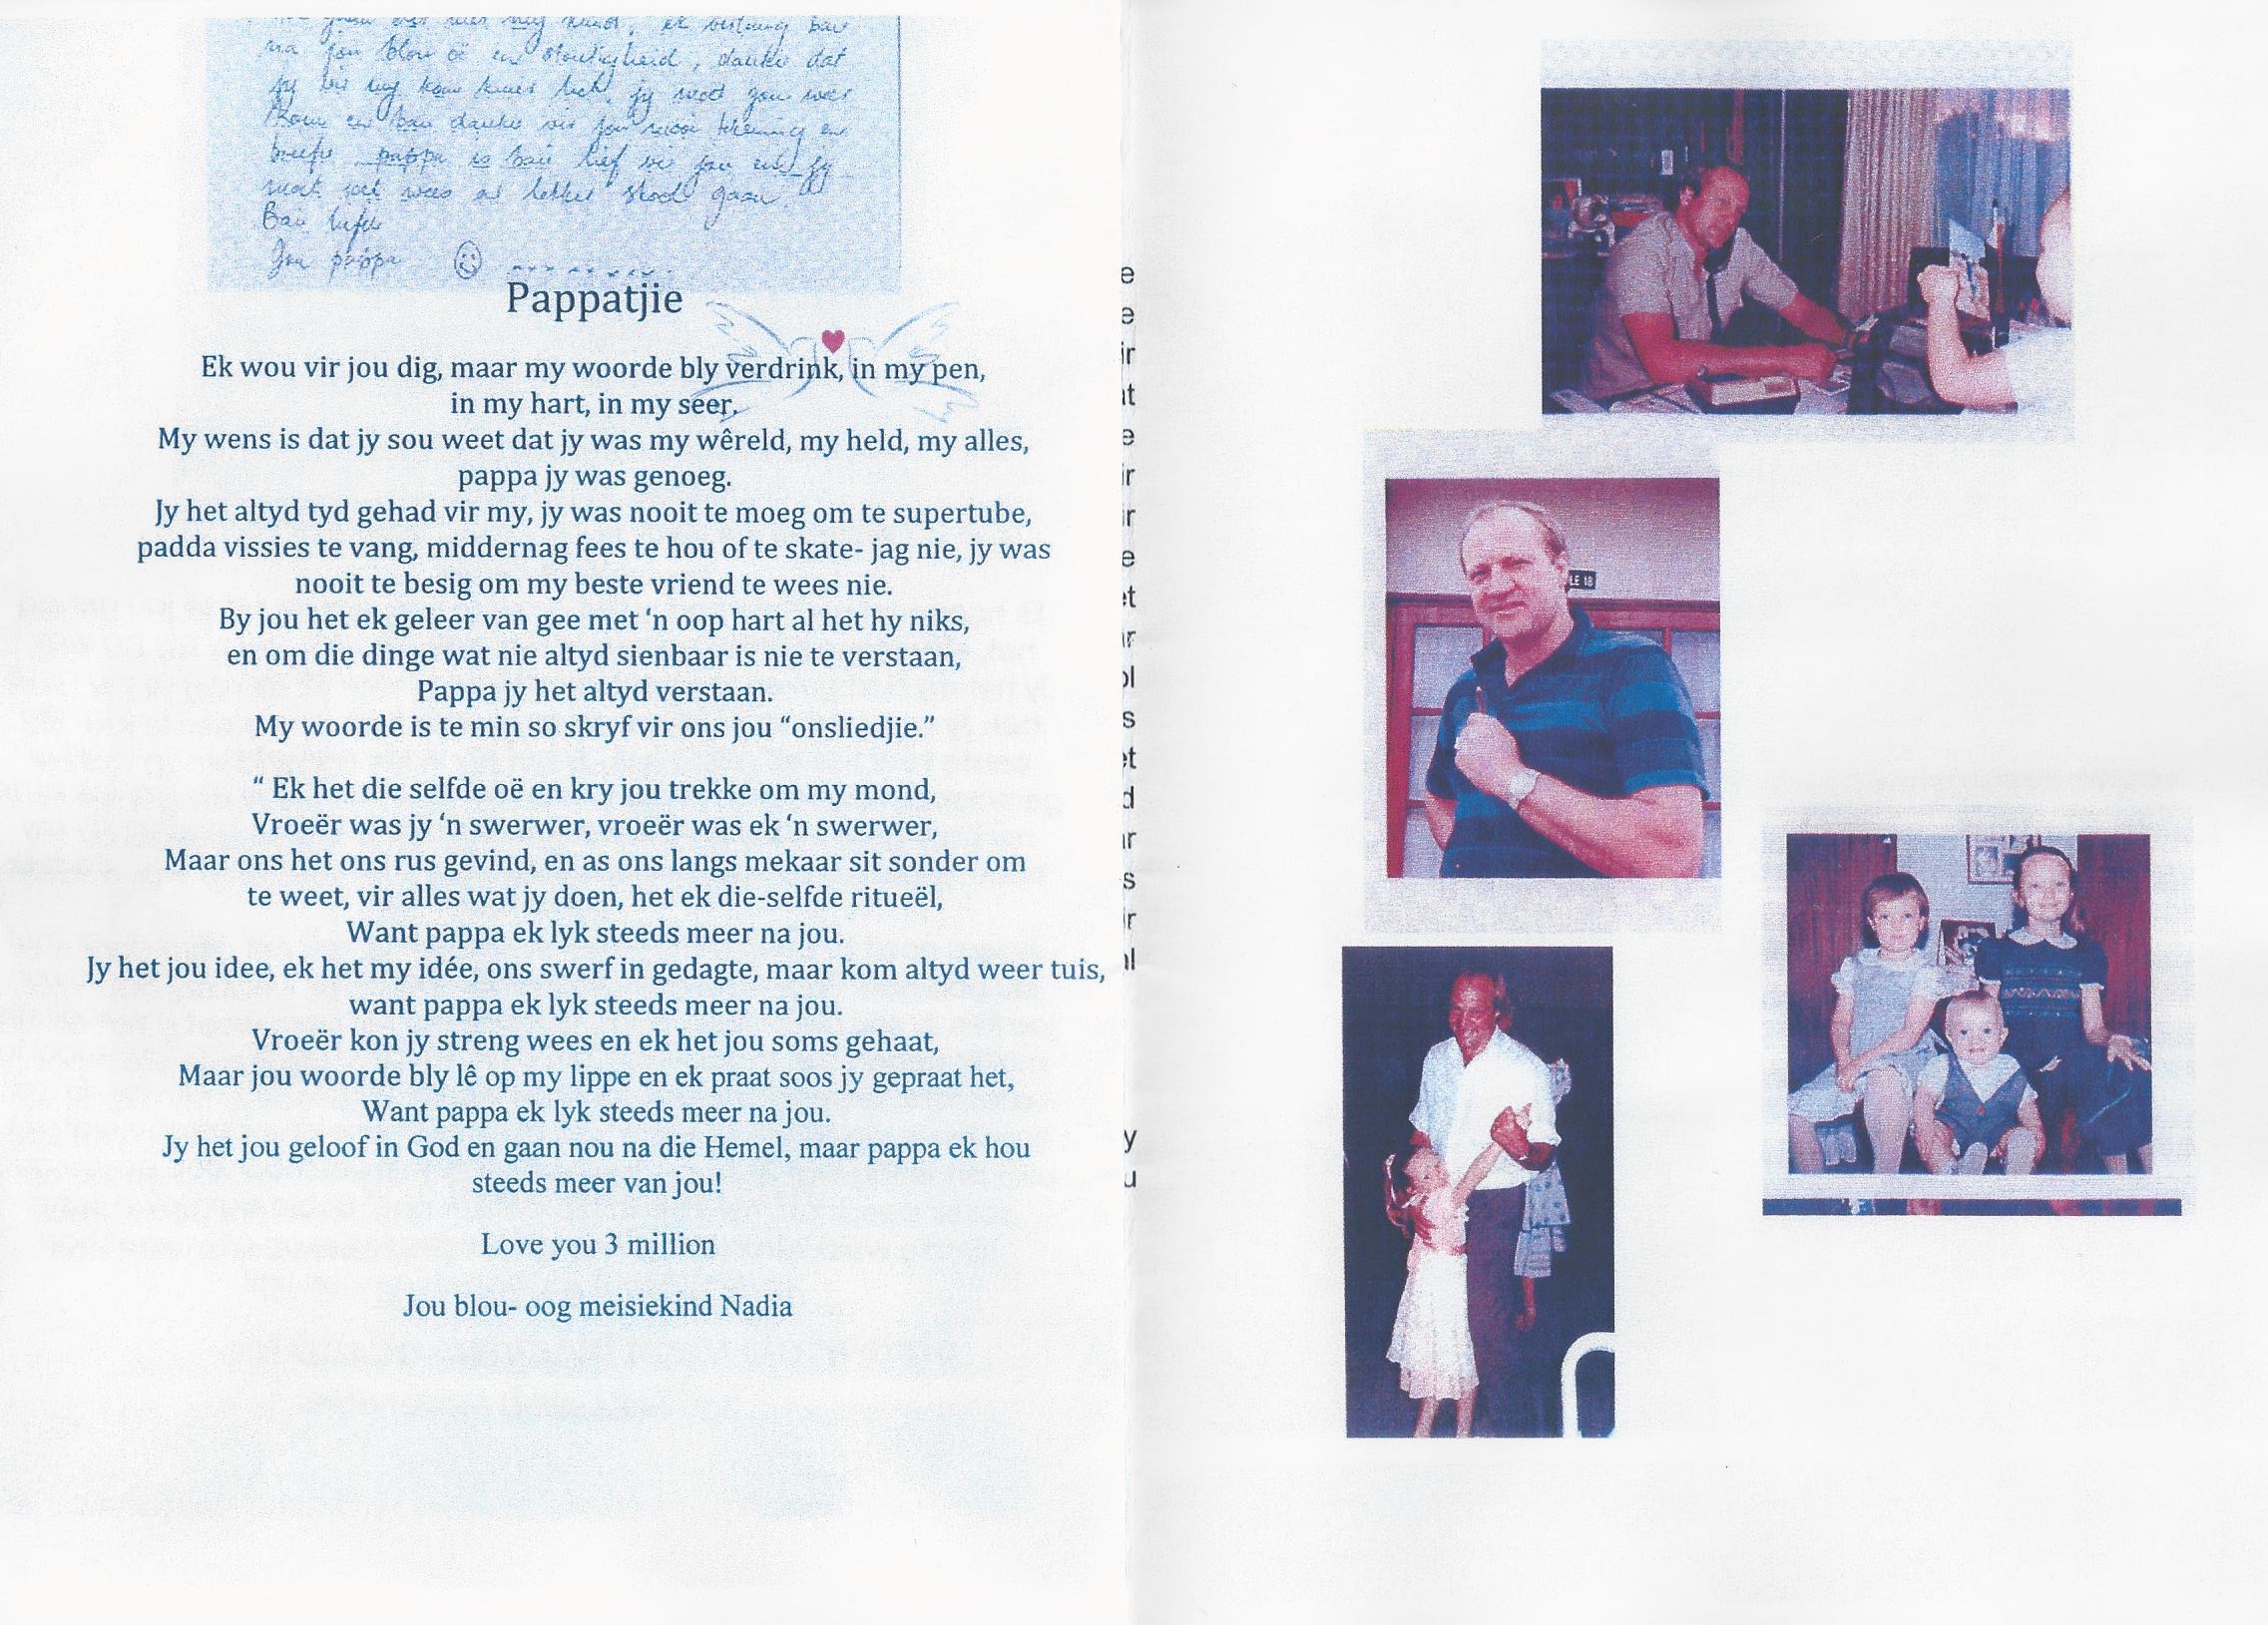 na jou blou oë en stoutigheid, danke dat
jy vir my kom kuier het, jy moet gou weer
kom en bau danke vir jou mooi tekening en
briefie pappa is bau lief vir jou en jy
moet soet wees en lekker skool gaan.
Bau liefde
Jou pappa
Pappatjie
Ek wou vir jou dig, maar my woorde bly verdrink, in my pen,
in my hart, in my seer.
My wens is dat jy sou weet dat jy was my wêreld, my held, my alles,
pappa jy was genoeg.
Jy het altyd tyd gehad vir my, jy was nooit te moeg om te supertube,
padda vissies te vang, middernag fees te hou of te skate- jag nie, jy was
nooit te besig om my beste vriend te wees nie.
By jou het ek geleer van gee met ‘n oop hart al het hy niks,
en om die dinge wat nie altyd sienbaar is nie te verstaan,
Pappa jy het altyd verstaan.
My woorde is te min so skryf vir ons jou “onsliedjie.”
“ Ek het die selfde oë en kry jou trekke om my mond,
Vroeër was jy ‘n swerwer, vroeër was ek ‘n swerwer,
Maar ons het ons rus gevind, en as ons langs mekaar sit sonder om
te weet, vir alles wat jy doen, het ek die-selfde ritueël,
Want pappa ek lyk steeds meer na jou.
Jy het jou idee, ek het my idée, ons swerf in gedagte, maar kom altyd weer tuis,
want pappa ek lyk steeds meer na jou.
Vroeër kon jy streng wees en ek het jou soms gehaat,
Maar jou woorde bly lê op my lippe en ek praat soos jy gepraat het,
Want pappa ek lyk steeds meer na jou.
Jy het jou geloof in God en gaan nou na die Hemel, maar pappa ek hou
steeds meer van jou!
Love you 3 million
Jou blou- oog meisiekind Nadia
LE 18